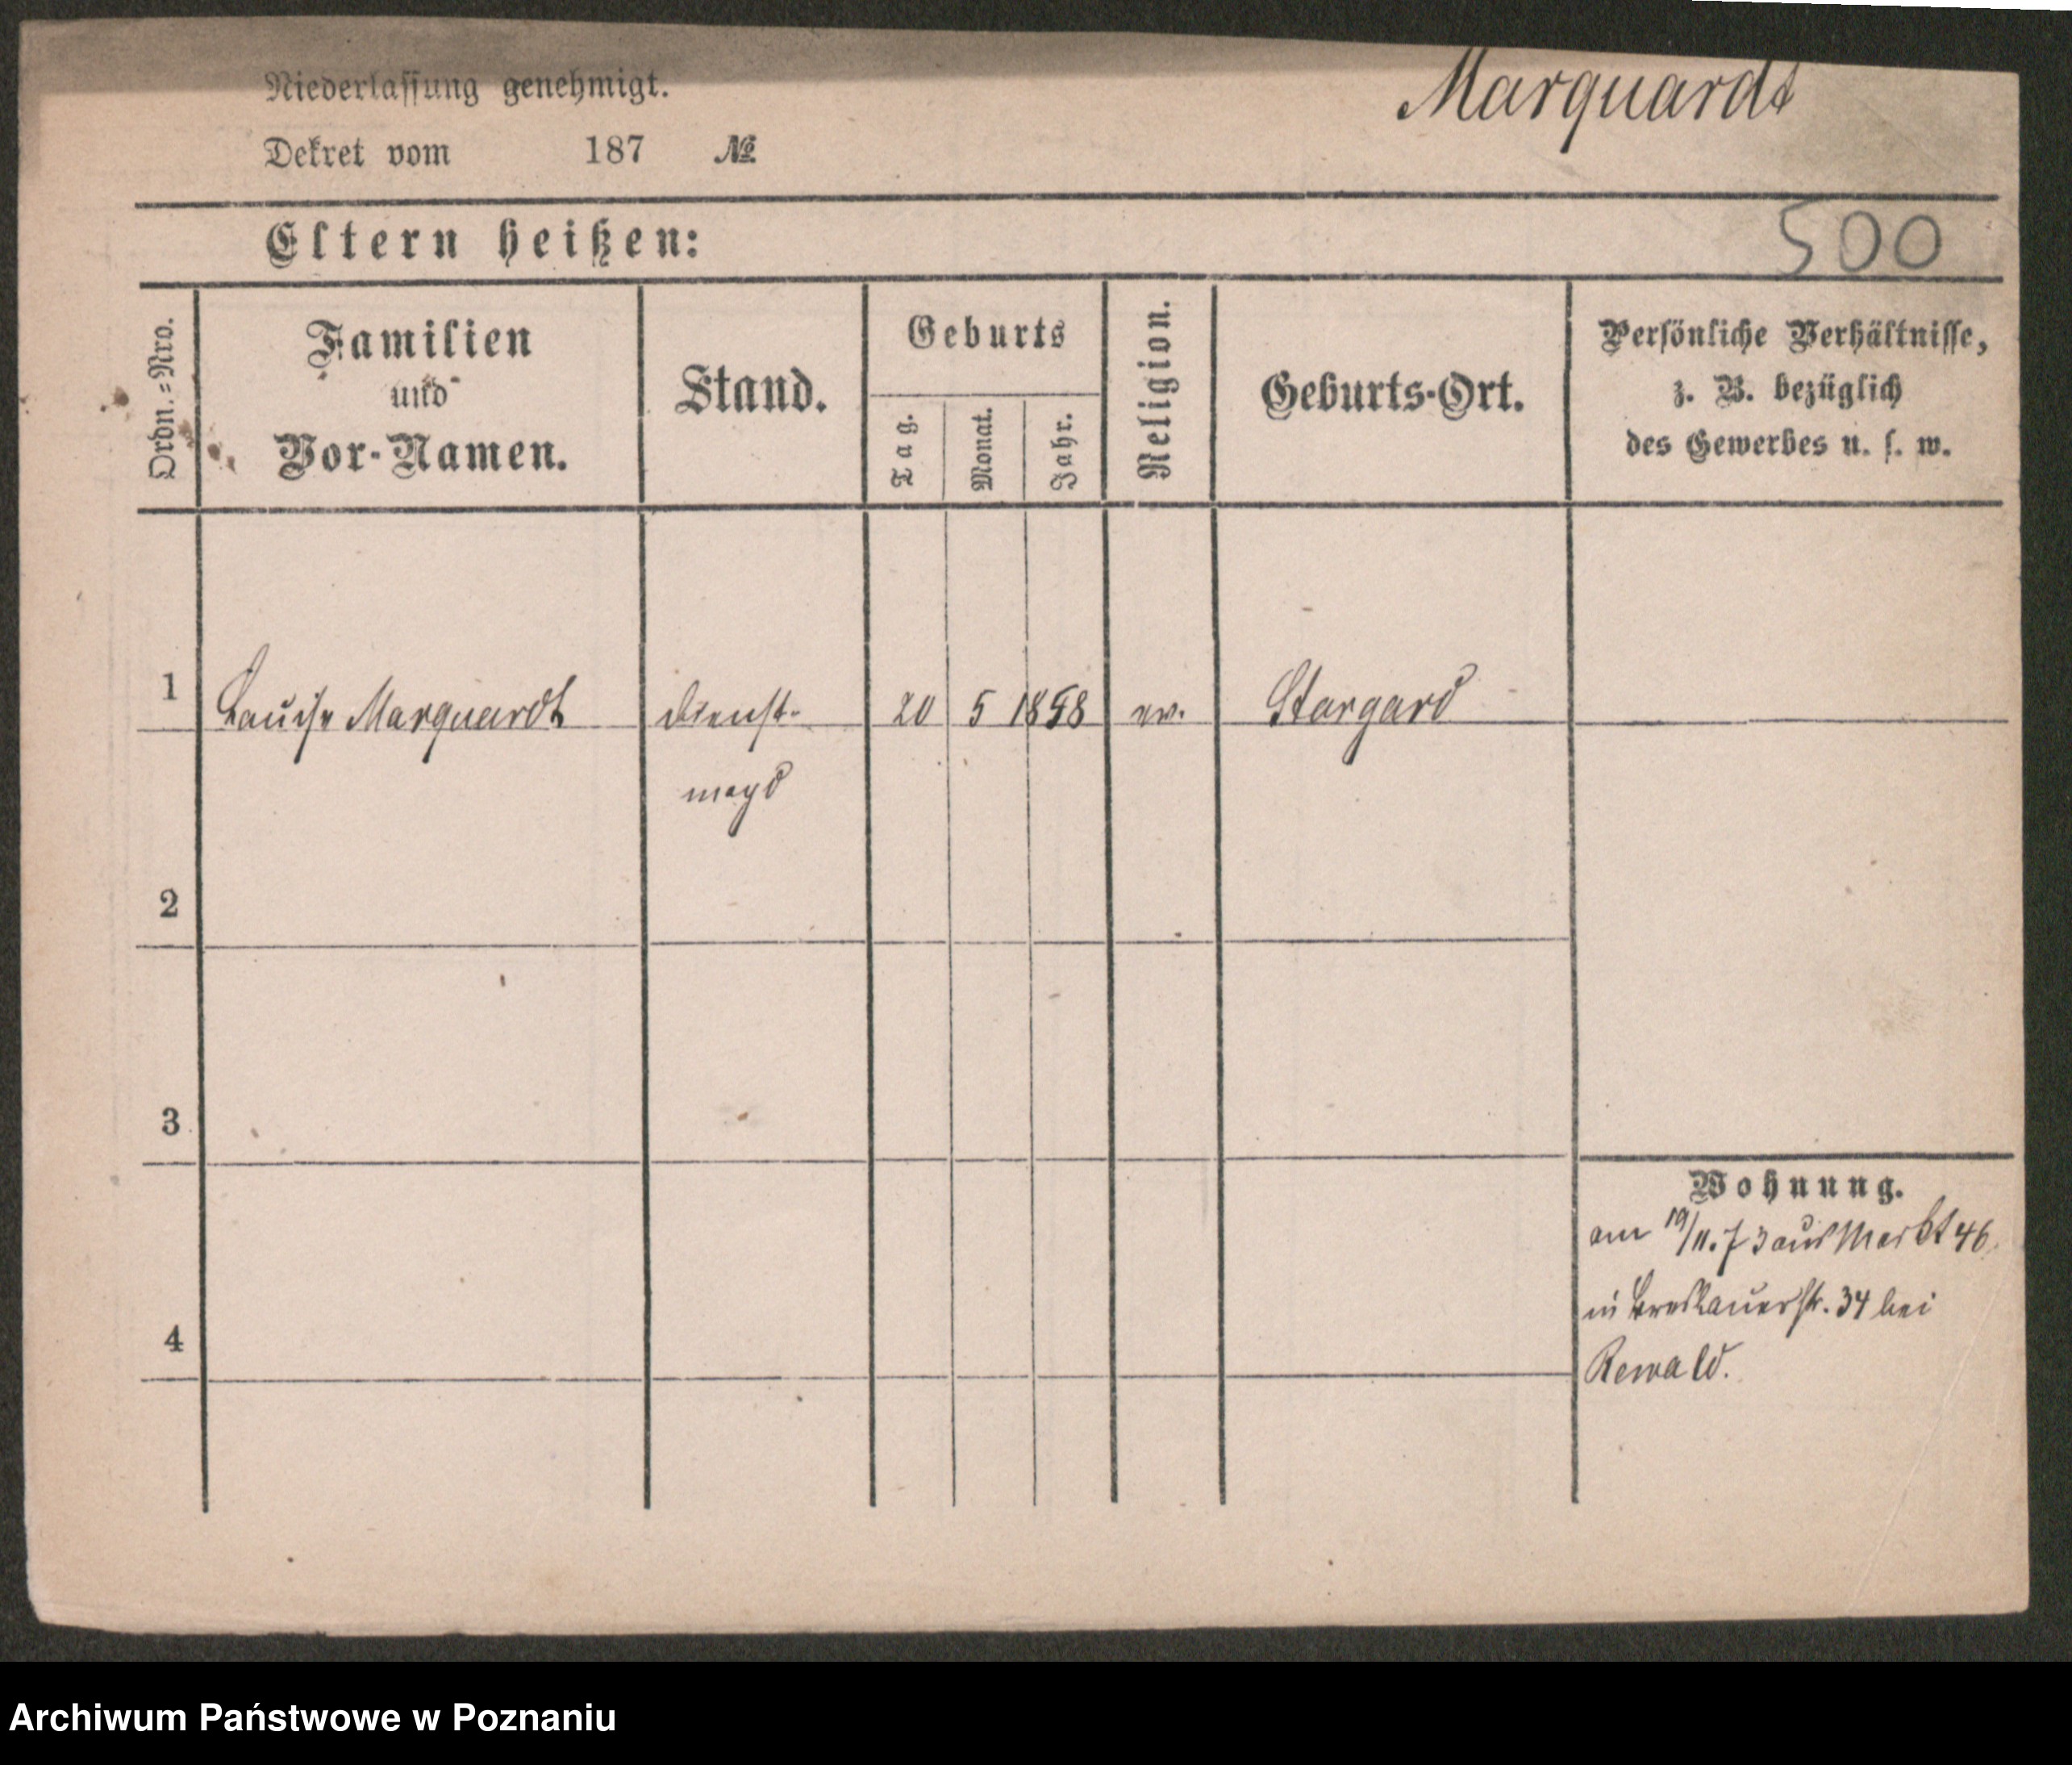 Niederlassung genehmigt.
Marquardt
Dekret vom 187 №
Eltern heißen:
500
Ordn.=Nro.
Familien
und
Vor-Namen.
Stand.
Geburts
Tag.
Monat.
Jahr.
Religion.
Geburts-Ort.
Persönliche Verhältnisse,
z. B. bezüglich
des Gewerbes u. s. w.
1 Louise Marquardt Dienst- 20 5 1858 ev. Stargard
magd
2
3
4
Wohnung.
am 19/11.73 aus Markt 46
in Breslauerstr. 34 bei
Rewald.
Archiwum Państwowe w Poznaniu